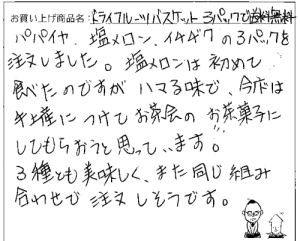 お買い上げ商品名:ドライフルーツバスケット 3パックで送料無料
パパイヤ、塩メロン、イチヂクの3パックを
注文しました。塩メロンは初めて
食べたのですがハマる味で、今度は
手土産につけてお茶会のお茶菓子に
してもらおうと思っています。
3種とも美味しく、また同じ組み
合わせで注文しそうです。